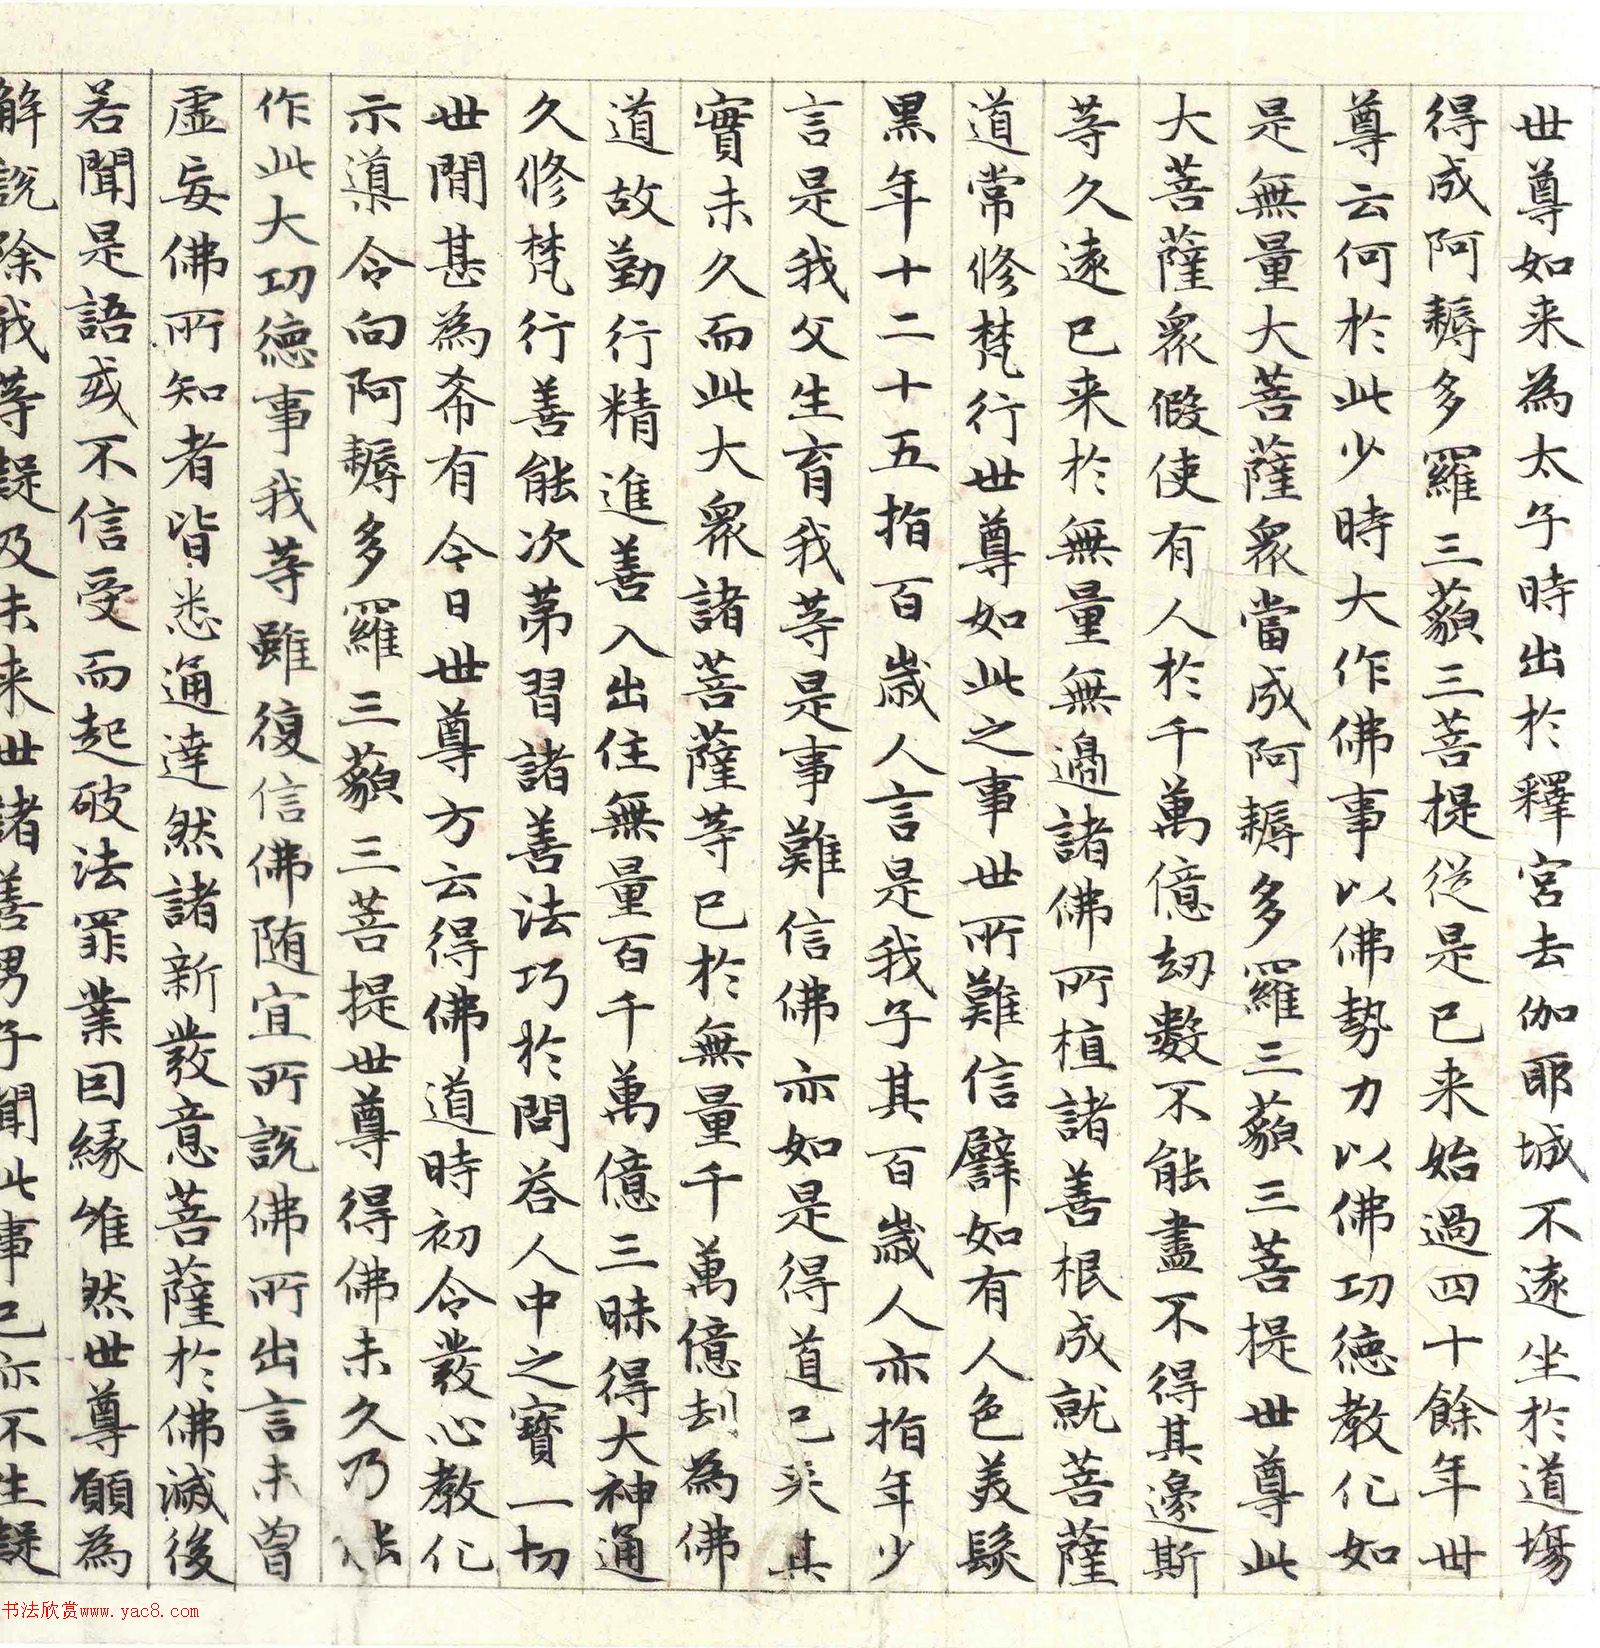 世尊如来為太子時出於釋宮去伽耶城不遠坐於道場
得成阿耨多羅三藐三菩提從是已来始過四十餘年世
尊云何於此少時大作佛事以佛勢力以佛功德教化如
是無量大菩薩眾當成阿耨多羅三藐三菩提世尊此
大菩薩眾假使有人於千萬億劫數不能盡不得其邊斯
等久遠已来於無量無邊諸佛所植諸善根成就菩薩
道常修梵行世尊如此之事世所難信譬如有人色美髮
黑年十二十五指百歲人言是我子其百歲人亦指年少
言是我父生育我等是事難信佛亦如是得道已来其
實未久而此大眾諸菩薩等已於無量千萬億劫為佛
道故勤行精進善入出住無量百千萬億三昧得大神通
久修梵行善能次第習諸善法巧於問答人中之寶一切
世間甚為希有今日世尊方云得佛道時初令發心教化
示導令向阿耨多羅三藐三菩提世尊得佛未久乃能
作此大功德事我等雖復信佛随宜所說佛所出言未曾
虛妄佛所知者皆悉通達然諸新發意菩薩於佛滅後
若聞是語或不信受而起破法罪業因緣唯然世尊願為
解說除我等疑及未来世諸善男子聞此事已亦不生疑
书法欣赏www.yac8.com